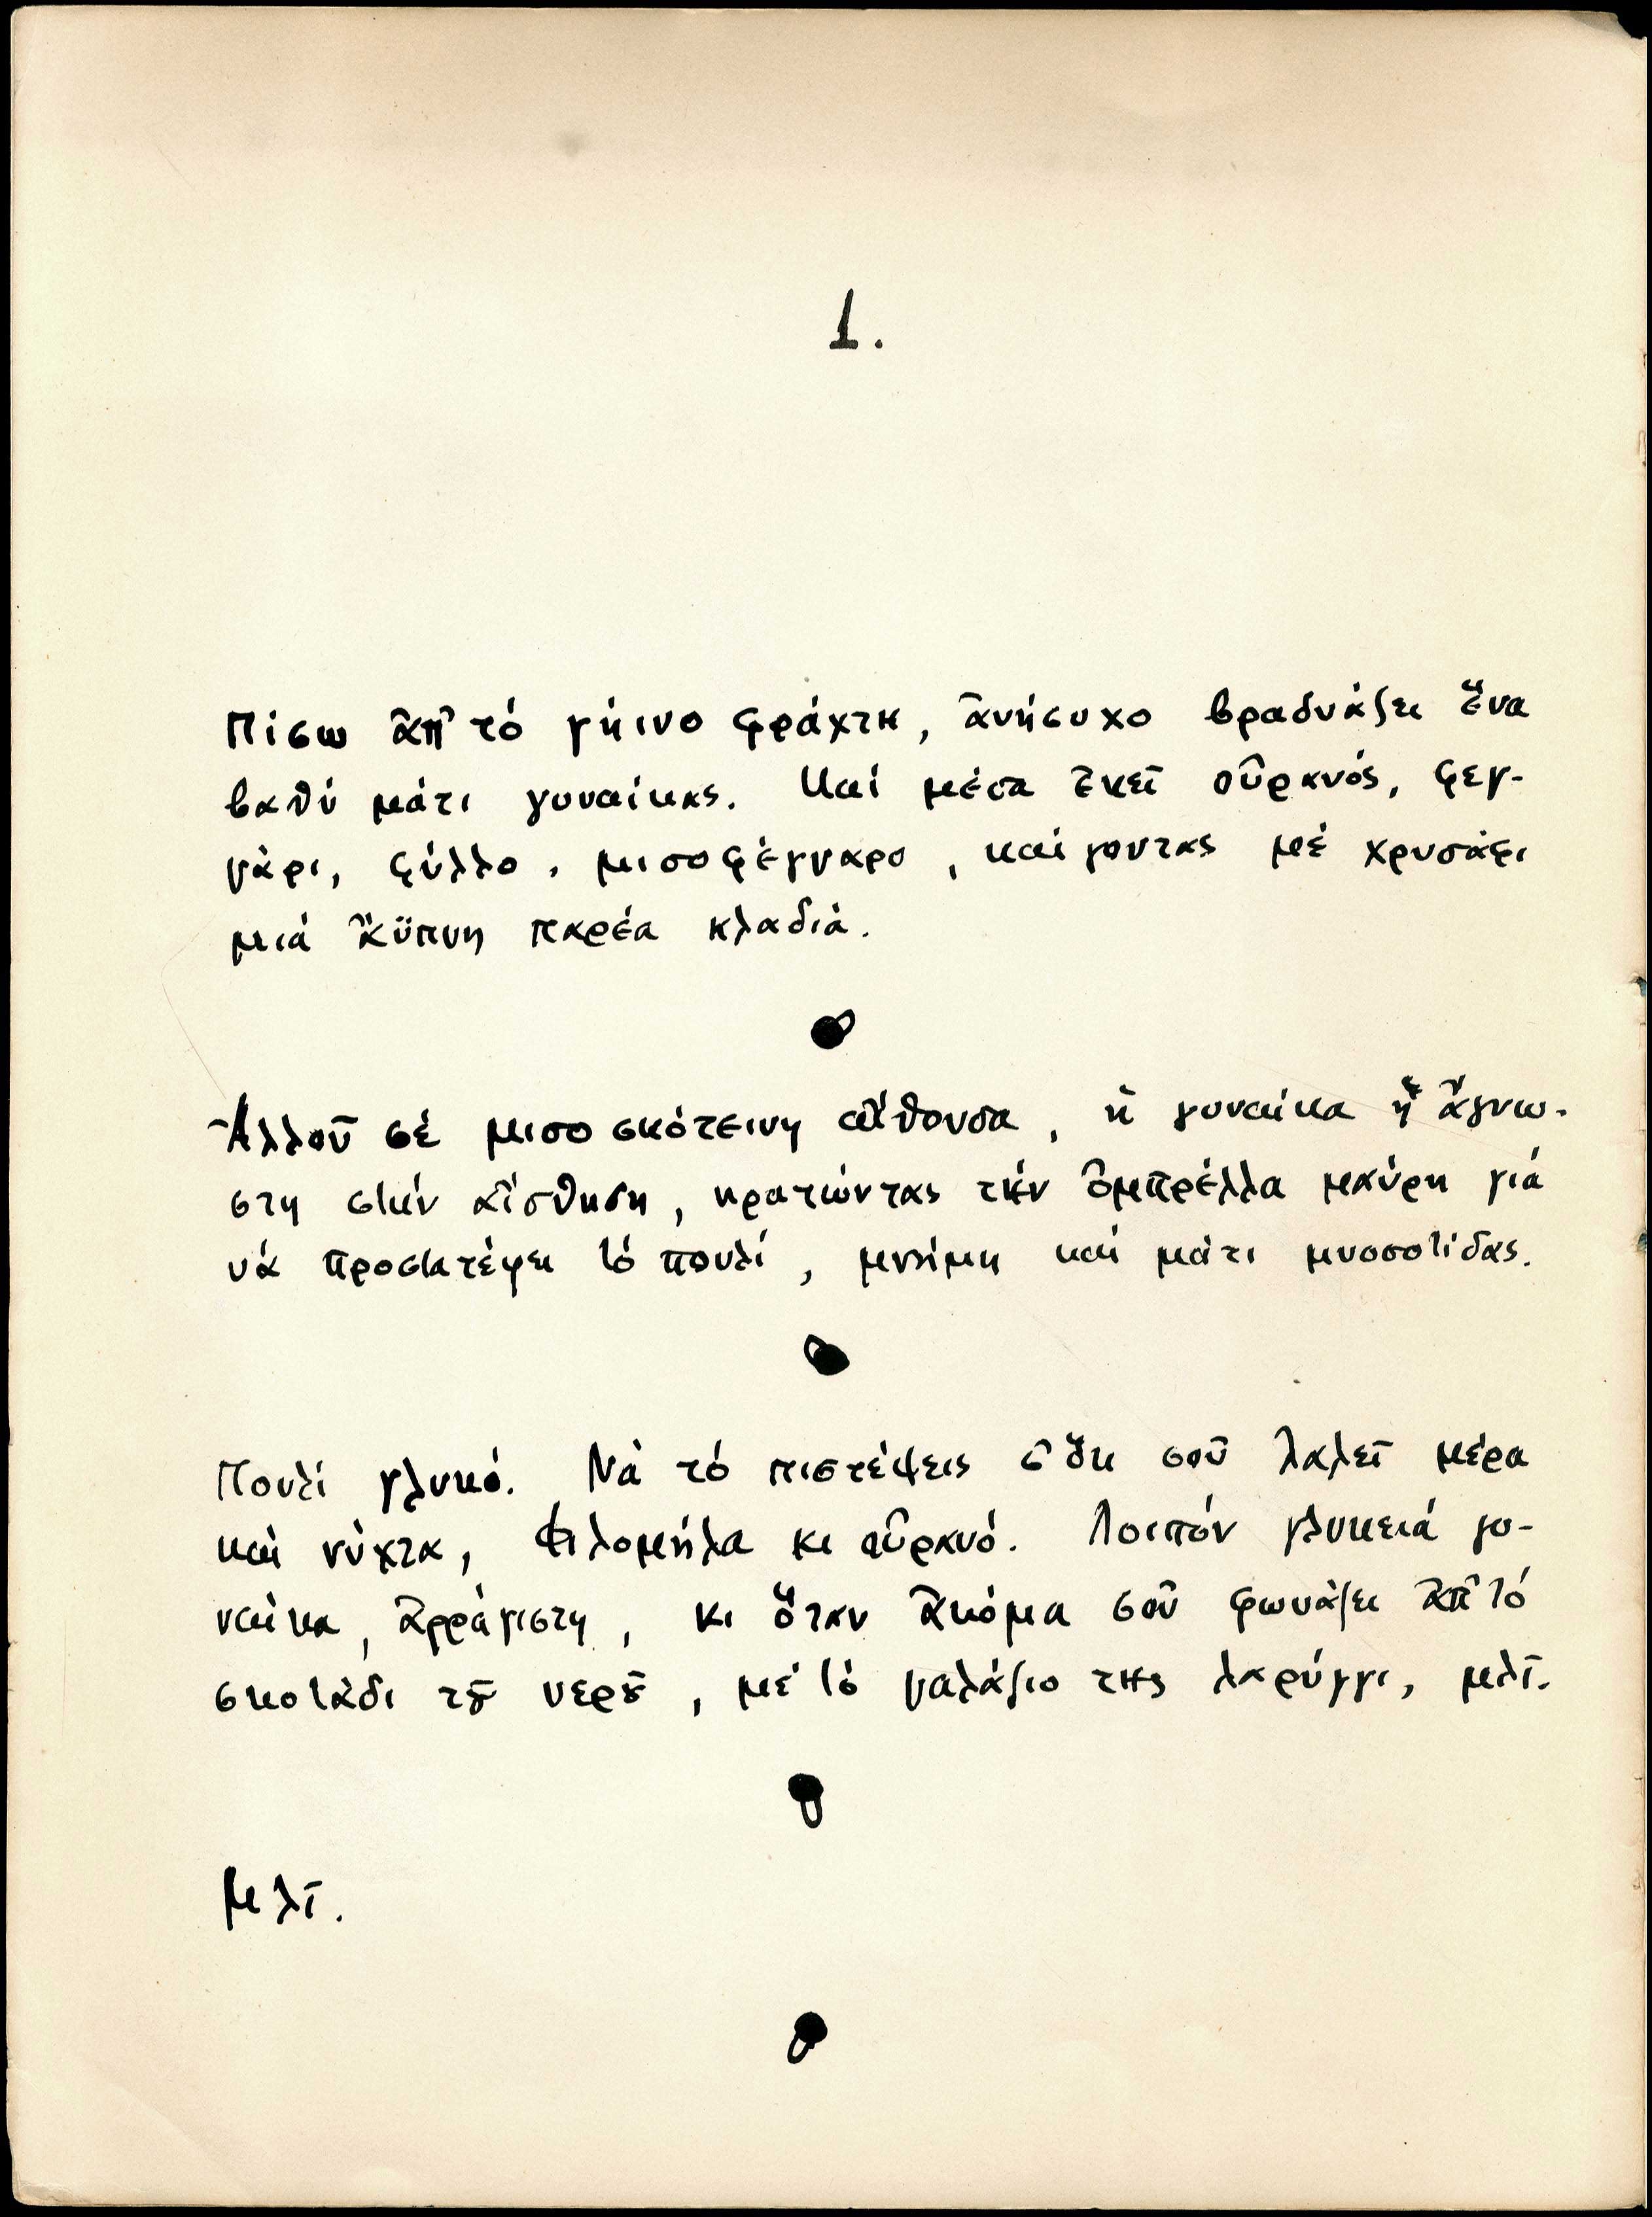 1.
Πίσω ἀπ' τό γήινο φράχτη, ἀνήσυχο βραδυάζει ἕνα
βαθύ μάτι γυναίκας. Καί μέσα ἐκεῖ οὐρανός, φεγ-
γάρι, φύλλο, μισοφέγγαρο, καίγοντας μέ χρυσάφι
μιά ἄϋπνη παρέα κλαδιά.
Ἀλλοῦ σέ μισοσκότεινη αἴθουσα, ἡ γυναίκα ἡ ἄγνω-
στη στήν αἴσθηση, κρατώντας τήν ὀμπρέλλα μαύρη γιά
νά προστατέψει τό πουλί, μνήμη καί μάτι μυοσοτίδας.
Πουλί γλυκό. Νά τό πιστέψεις ὅτι σοῦ λαλεῖ μέρα
καί νύχτα, Φιλομήλα κι οὐρανό. Λοιπόν γλυκειά γυ-
ναίκα, ἀρράγιστη, κι ὅταν ἀκόμα σοῦ φωνάζει ἀπ' τό
σκοτάδι τȣ͂ νερȣ͂, μέ τό γαλάζιο της λαρύγγι, μλῖ.
Μλῖ.